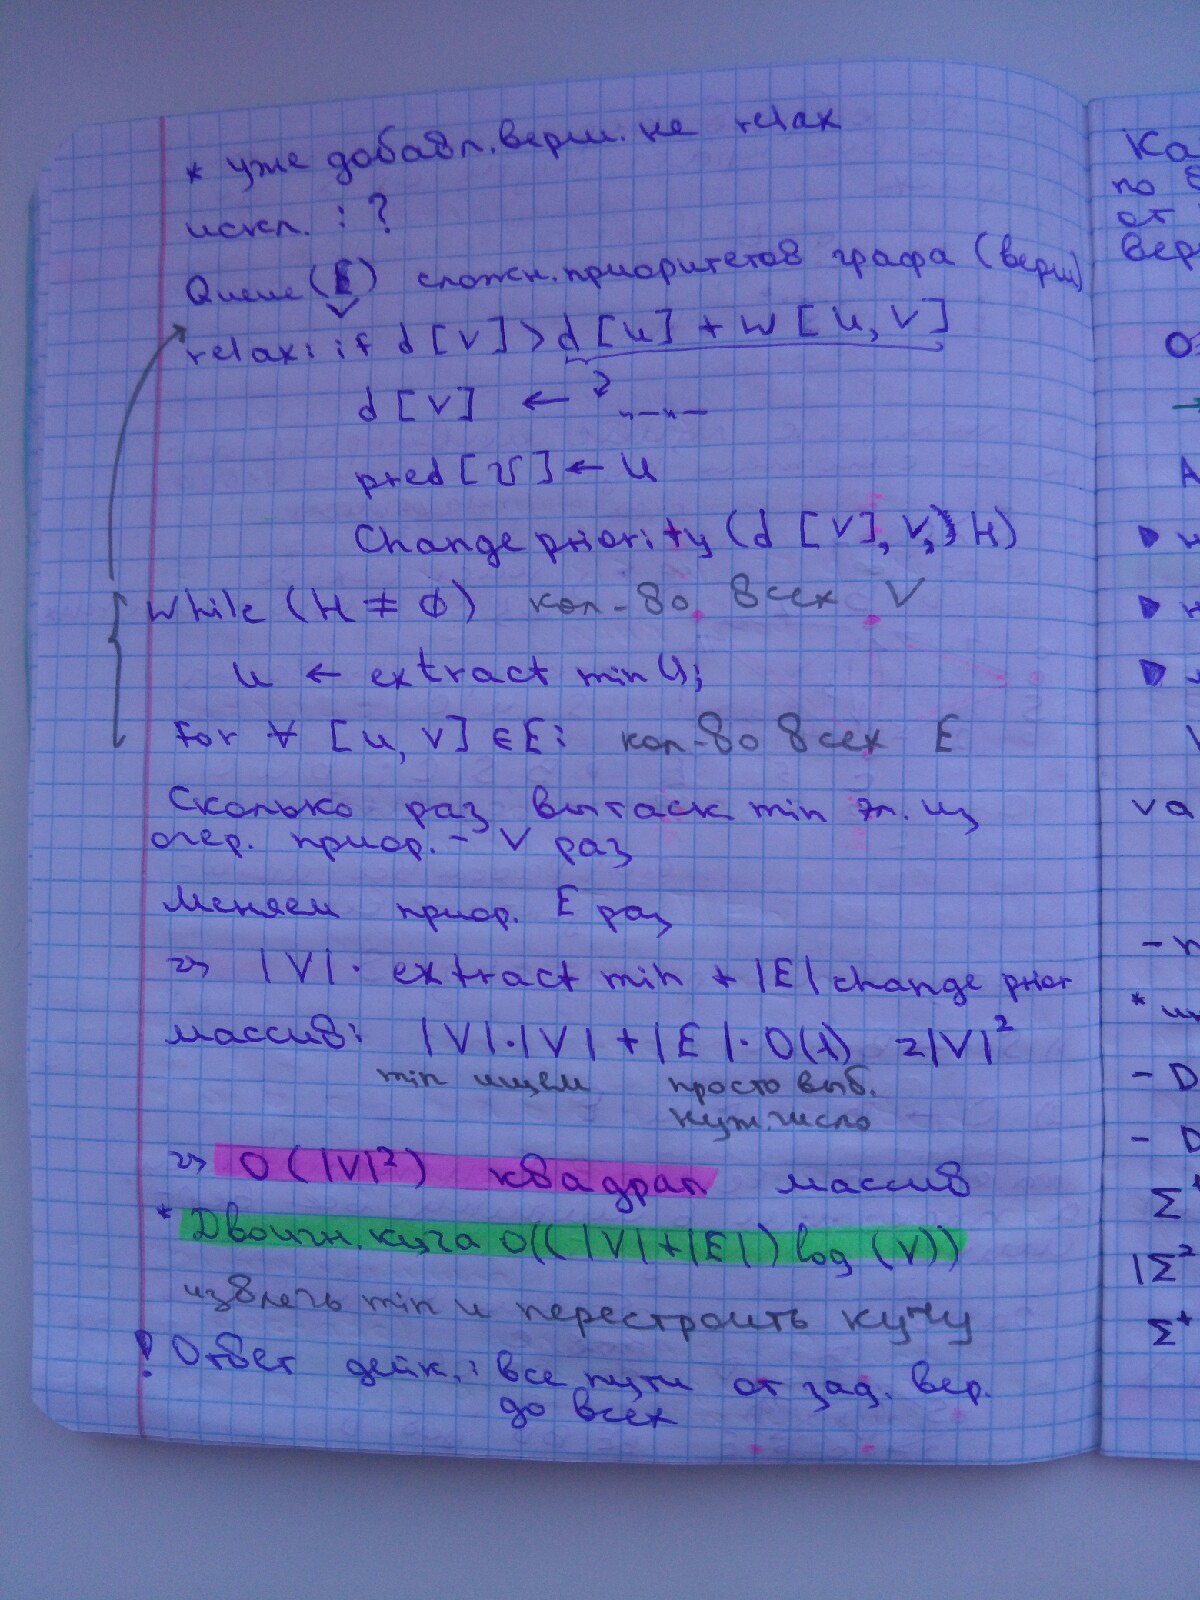 * уже добавл. верш. не relax
искл. : ?
Queue (E) сложн. приоритетов графа (верш)
V
relax: if d [V] > d [u] + w [u, v]
d [V] ←
pred [V] ← u
Change priority (d [V], V, H)
while (H ≠ ∅) кол-во всех V
u ← extract min ();
for ∀ [u, v] ∈ E: кол-во всех E
Сколько раз вытаск min эл. из
очер. приор. - V раз
Меняем приор. E раз
=> |V| · extract min + |E| change prior
массив: |V|·|V| + |E|· O(1) ≈|V|²
min ищем просто выб.
нуж. число
=> O(|V|²) квадрат массив
* Двоичн. куча O((|V|+|E|) log (V))
извлечь min и перестроить кучу
! Ответ дейк.: все пути от зад. вер.
до всех
Ка
по
от
вер
va
* 
- D
- D
Σ
|Σ²
Σ+